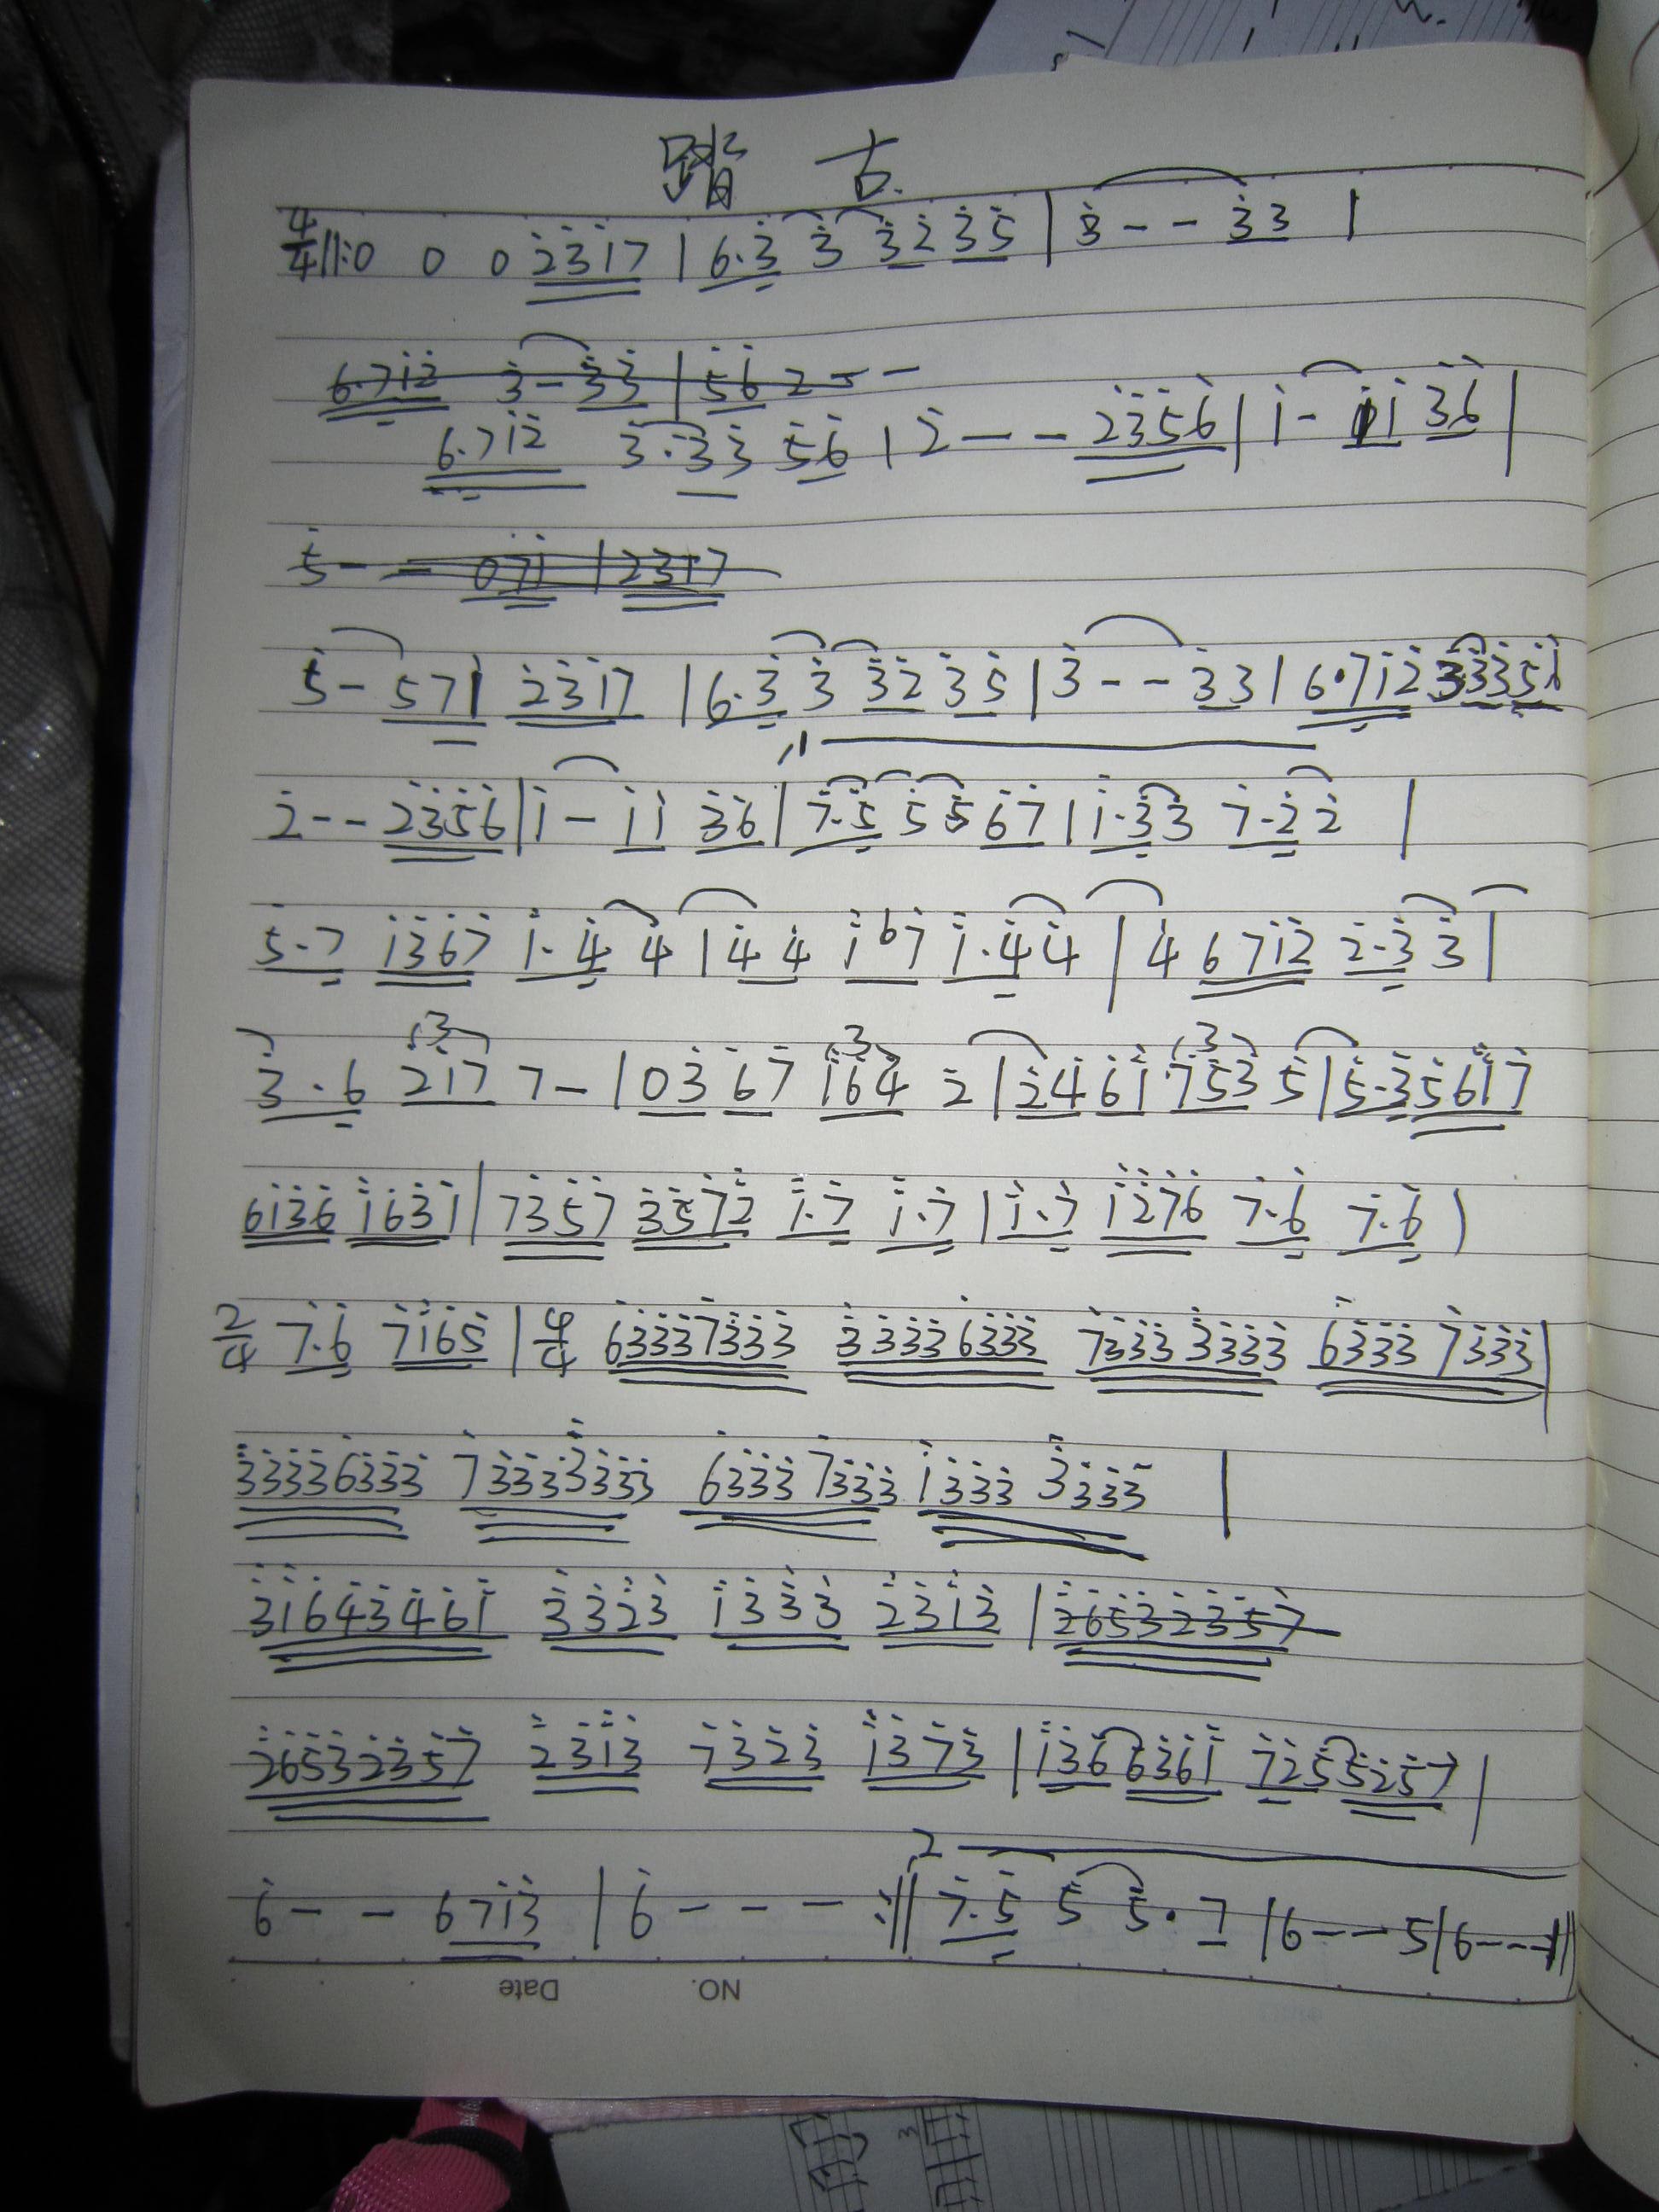 踏 古
4/4 ‖: 0 0 0 2̇3̇1̇7 | 6·3̇ 3̇ 3̇2̇ 3̇5̇ | 3̇ - - 3̇3 |
6·71̇2̇ 3̇ - 3̇3̇ | 5̇6̇ 2 - -
6·71̇2̇ 3̇·3̇3̇ 5̇6̇ | 2̇ - - - 2̇3̇5̇6̇ | 1̇ - 1̇1̇ 3̇6̇ |
5̇ - - 071̇ | 2317
5̇ - 571 2̇3̇1̇7 | 6·3̇ 3̇ 3̇2̇ 3̇5̇ | 3̇ - - 3̇3 | 6·71̇2̇ 3̇3̇3̇5̇1̇
1
2̇ - - 2̇3̇5̇6̇ | 1̇ - 1̇1̇ 3̇6̇ | 7̇·5̇ 5̇ 5̇ 6̇7̇ | 1̇·3̇3̇ 7̇·2̇2̇ |
5̇·7̇ 1̇3̇6̇7̇ 1̇·4̇ 4 | 4̇4̇ 1̇67̇ 1̇·4̇4̇ | 4 671̇2̇ 2̇·3̇3̇ |
3 3 3
3̇·6 2̇1̇7 7 - | 03̇ 6̇7̇ 1̇6̇4̇ 2̇ | 2̇4̇ 6̇1̇ 7̇5̇3̇ 5̇ | 5̇·3̇5̇6̇1̇7̇
61̇3̇6̇ 1̇6̇3̇1̇ | 7̇3̇5̇7̇ 3̇5̇7̇2̇ 1̇·7̇ 1̇·7̇ | 1̇·7̇ 1̇2̇7̇6̇ 7̇·6̇ 7̇·6̇ |
2/4 7̇·6̇ 7̇1̇6̇5̇ | 4/4 6̇3̇3̇3̇7̇3̇3̇3̇ 3̇3̇3̇3̇6̇3̇3̇3̇ 7̇3̇3̇3̇3̇3̇3̇3̇ 6̇3̇3̇3̇7̇3̇3̇3̇ |
3̇3̇3̇3̇6̇3̇3̇3̇ 7̇3̇3̇3̇3̇3̇3̇3̇ 6̇3̇3̇3̇7̇3̇3̇3̇ 1̇3̇3̇3̇ 3̇3̇3̇3̇ |
3̇1̇6̇4̇3̇4̇6̇1̇ 3̇3̇2̇3̇ 1̇3̇3̇3̇ 2̇3̇1̇3̇ | 2̇6̇5̇3̇2̇3̇5̇7̇
2̇6̇5̇3̇2̇3̇5̇7̇ 2̇3̇1̇3̇ 7̇3̇2̇3̇ 1̇3̇7̇3̇ | 1̇3̇6̇6̇3̇6̇1̇ 7̇2̇5̇5̇2̇5̇7̇ |
2
6̇ - - 671̇3̇ | 6̇ - - - :‖ 7̇·5̇ 5̇ 5̇·7 | 6 - - - 5 | 6 - - - ‖
Date NO.